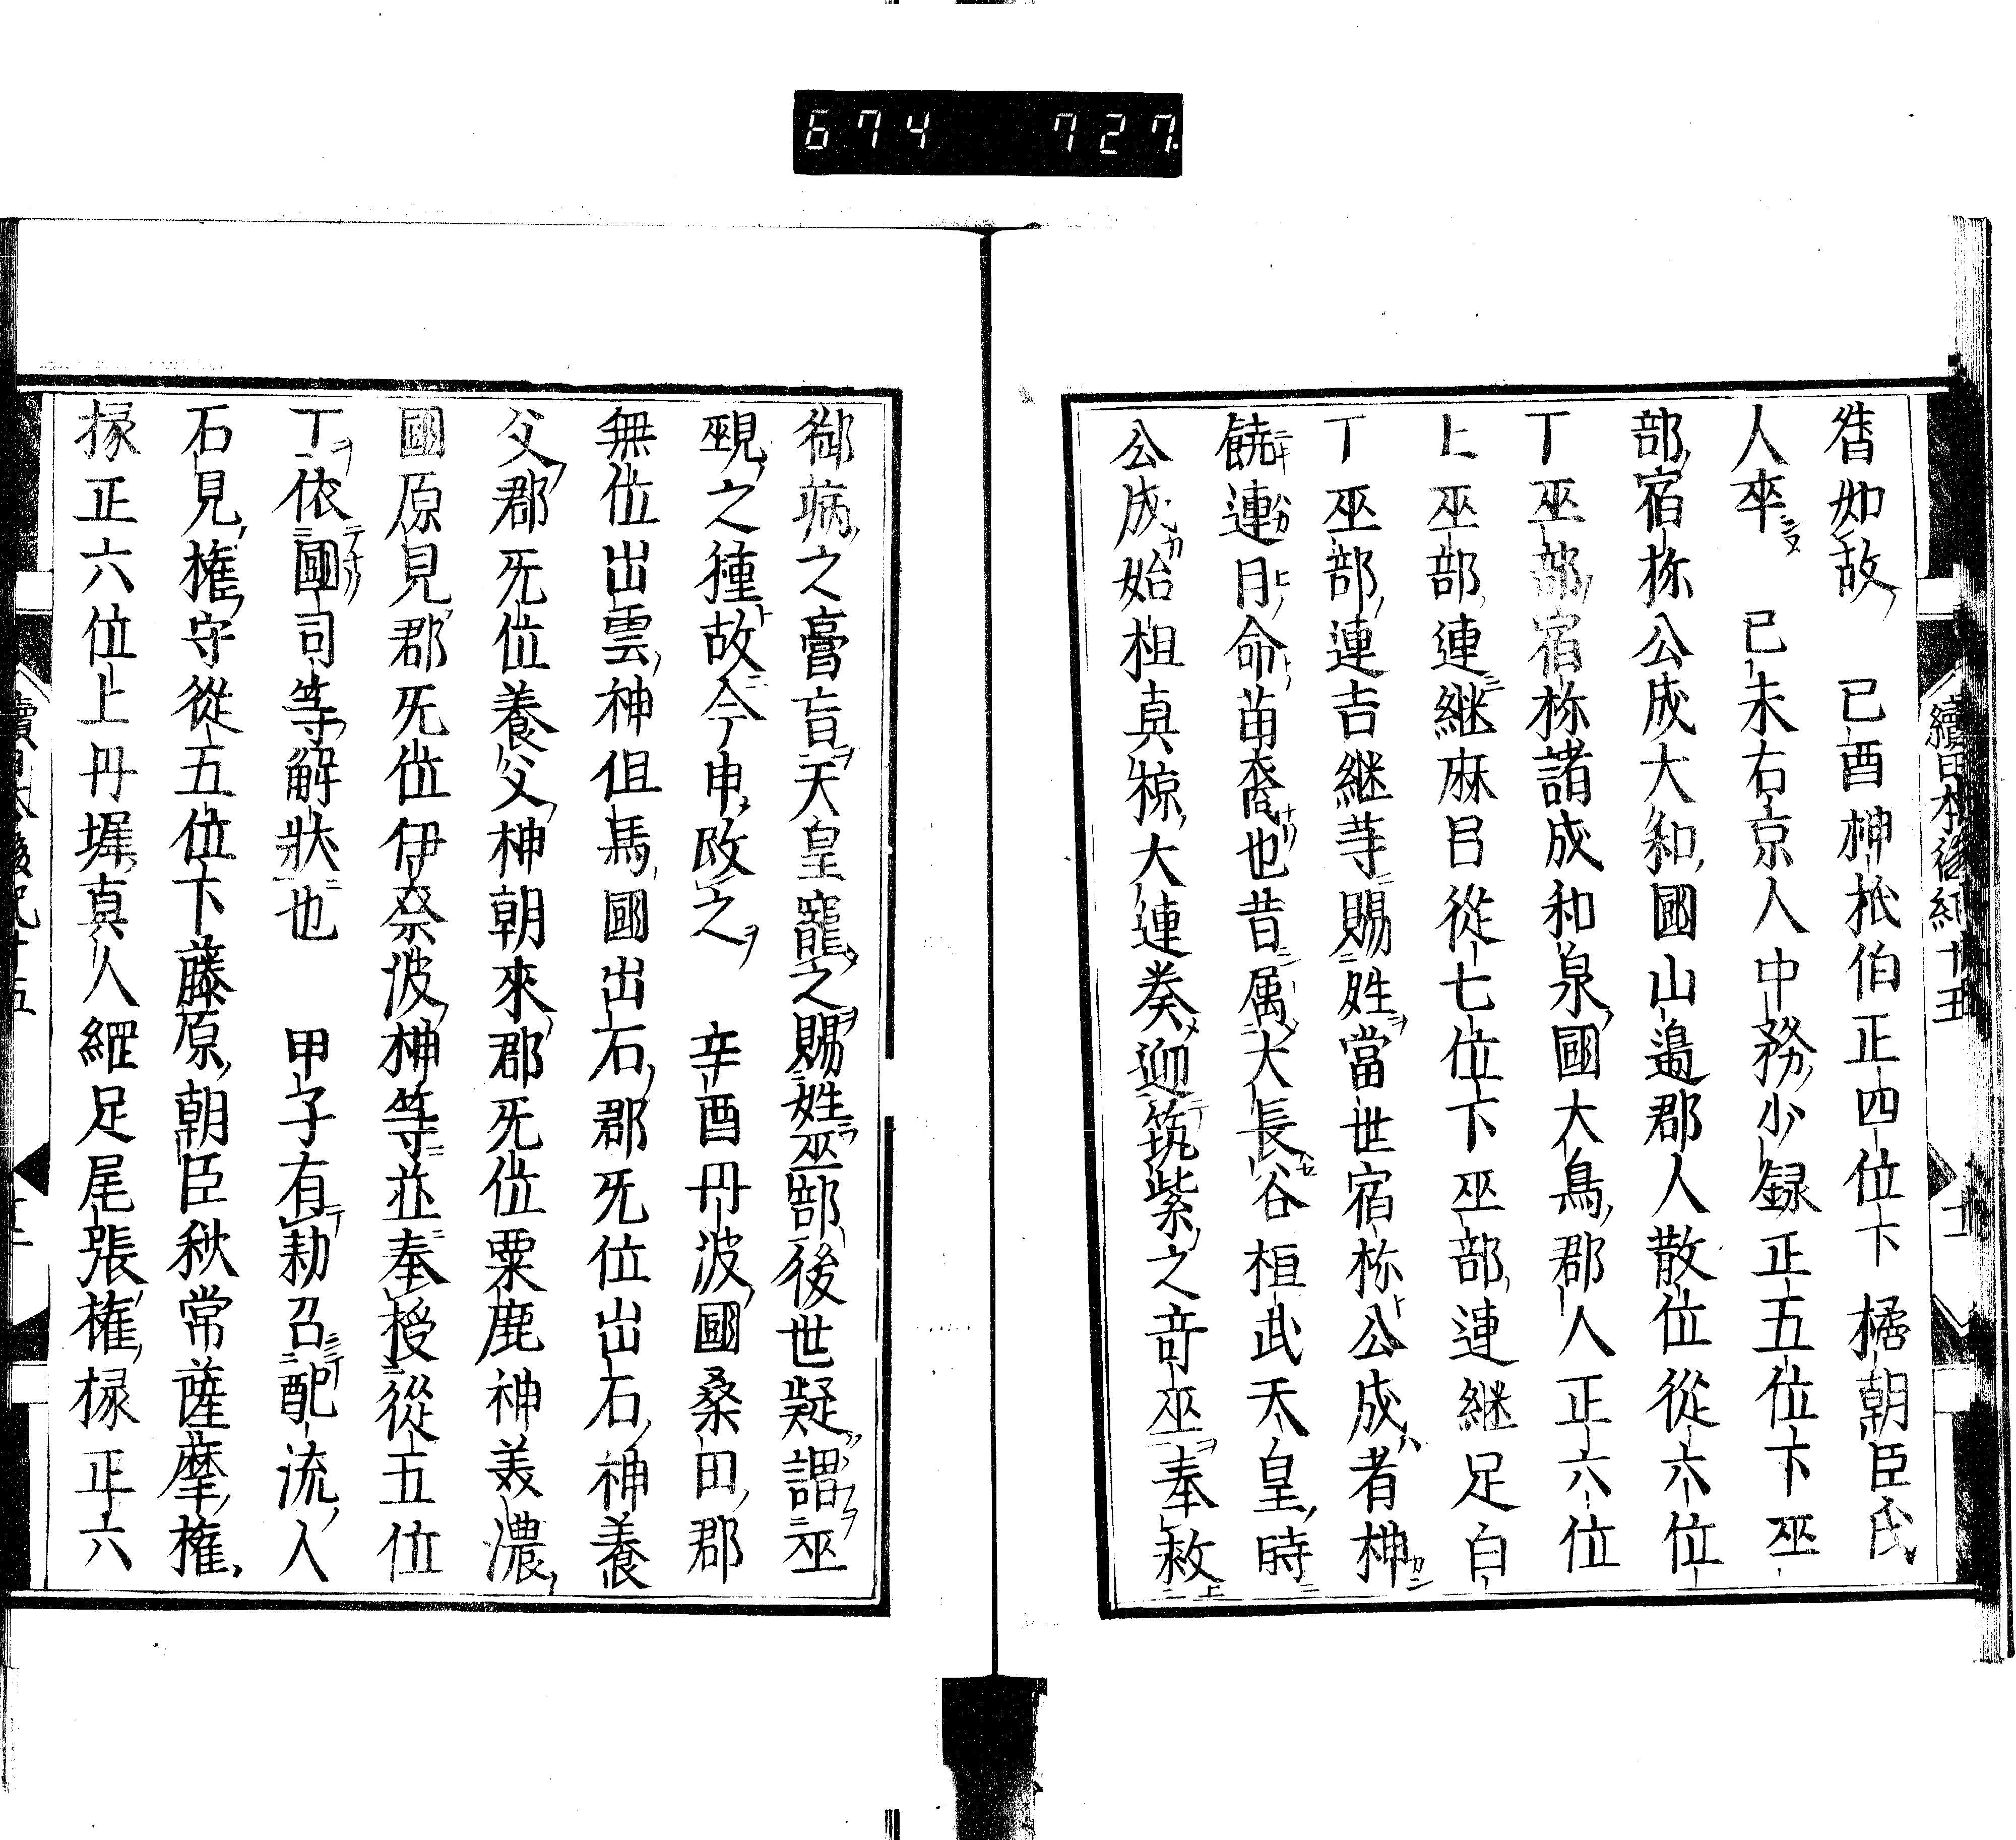 674 727
續日本後紀十五
眥如故 已酉神祇伯正四位下橘朝臣氏
人卒 已未右京人中務少録正五位下巫
部宿祢公成大和國山邉郡人散位從六位
丁巫部宿祢諸成和泉國大鳥郡人正六位
上巫部連継麻呂從七位下巫部連継足白
丁巫部連吉継䓁賜姓當世宿祢公成者神
饒速日命苗裔也昔属大長谷桓武天皇時
公成始祖真椋大連奏迎筑紫之奇巫奉救
御病之膏肓天皇寵之賜姓巫部後世疑謂巫
覡之種故今申改之 辛酉丹波國桑田郡
無位出雲神但馬國出石郡旡位出石神養
父郡旡位養父神朝來郡旡位粟鹿神美濃
國原見郡旡位伊奈波神等並奉授從五位
丁依國司等解狀也 甲子有勅召配流人
石見權守從五位下藤原朝臣秋常薩摩權
掾正六位上丹墀真人縄足尾張權掾正六